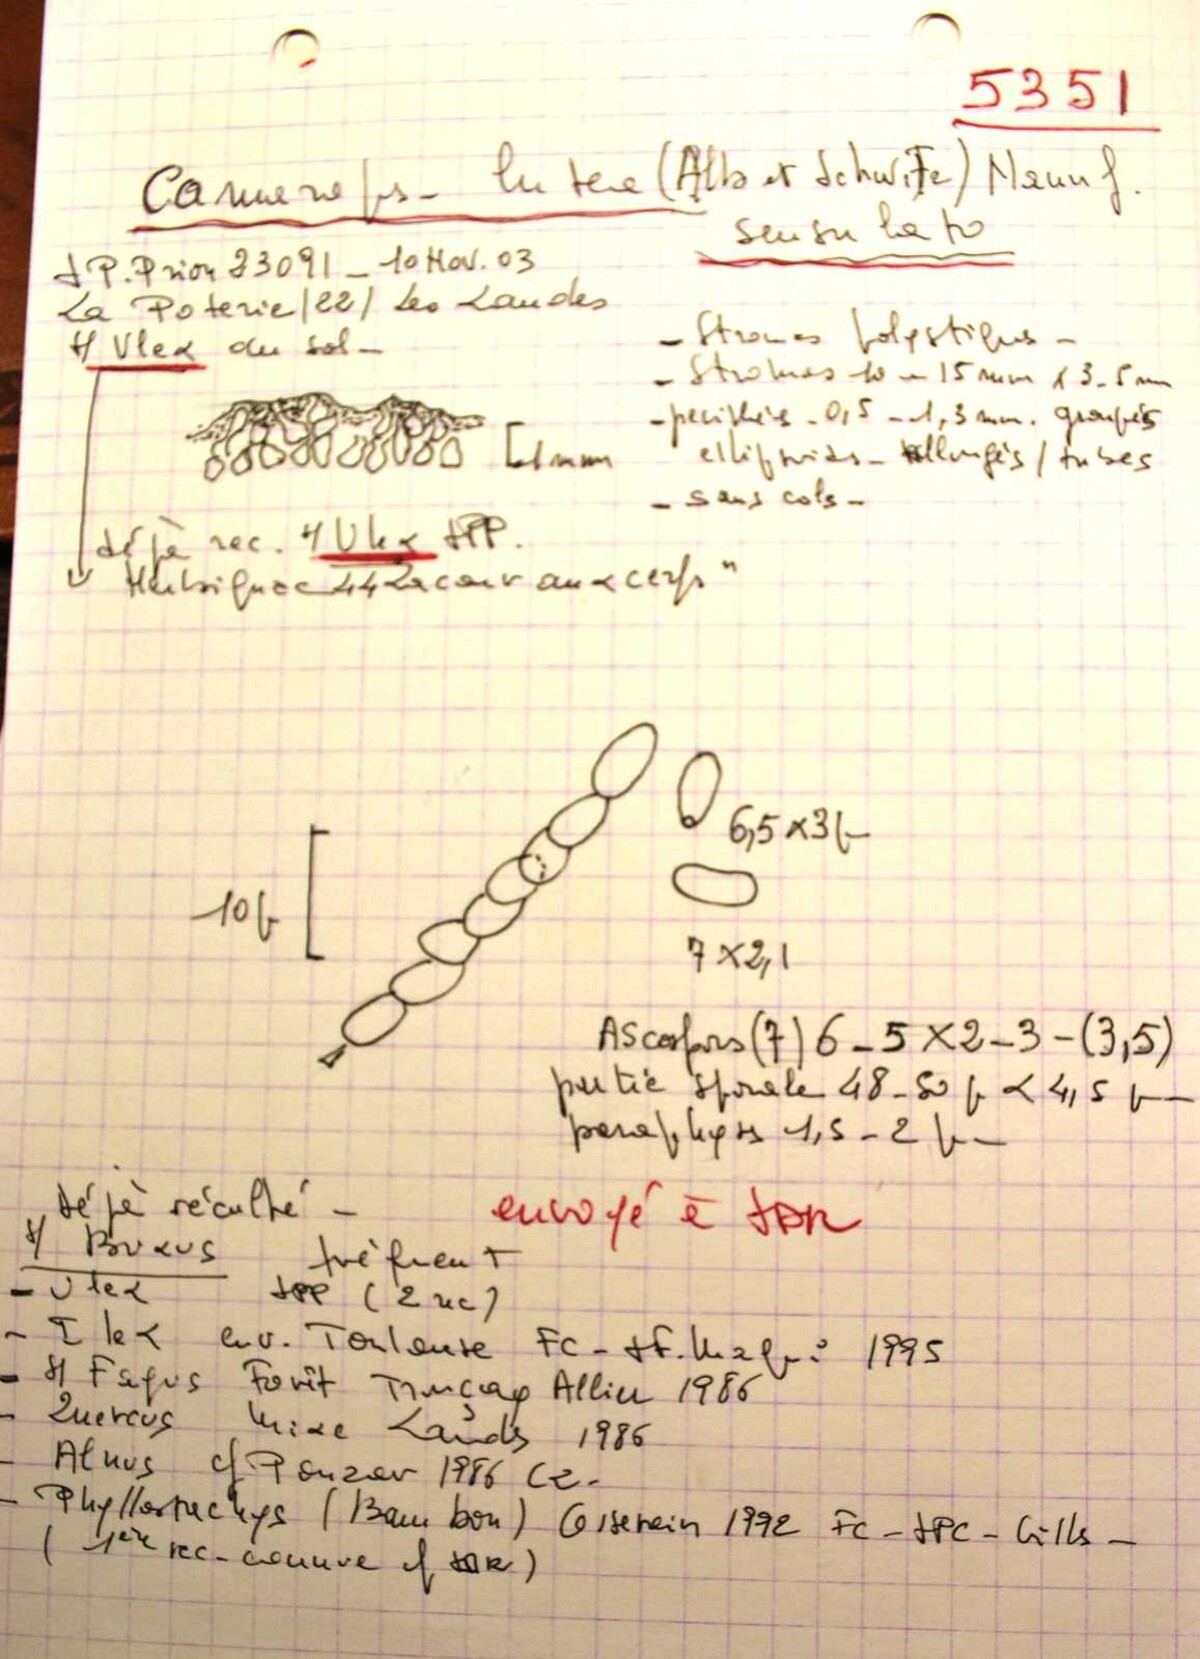 5351
Camarops lutea (Alb et Schw: Fr) Nannf.
sensu lato
JP. Priou 23091 - 10 Nov. 03
La Poterie /22/ les Landes
s/ Ulex au sol -
- Stromas polystiques -
- Stromas 10 - 15 mm x 3-5 mm
- perithèces - 0,5 - 1,3 mm. groupés
ellipsoides - allongés / tubes
- sans cols -
1 mm
déjà rec. s/ Ulex JPP.
Herbignac 44 La cour aux cerfs"
6,5 x 3 µ
10 µ
7 x 2,1
Ascospores (7) 6 - 5 x 2 - 3 - (3,5)
partie sporale 48 - 50 µ x 4,5 µ -
paraphyses 1,5 - 2 µ -
déjà récolté -
envoyé à JDR
s/ Buxus fréquent
- Ulex JPP (2 rec)
- Ilex env. Toulouse FC - JF. 1995
- s/ Fagus Forêt Tronçay Allier 1986
- Quercus Mixe Landes 1986
- Alnus 1986
- Phyllostachys (Bambou) 1992 FC - JPC - Gilles -
( 1ère rec. connue JDR )